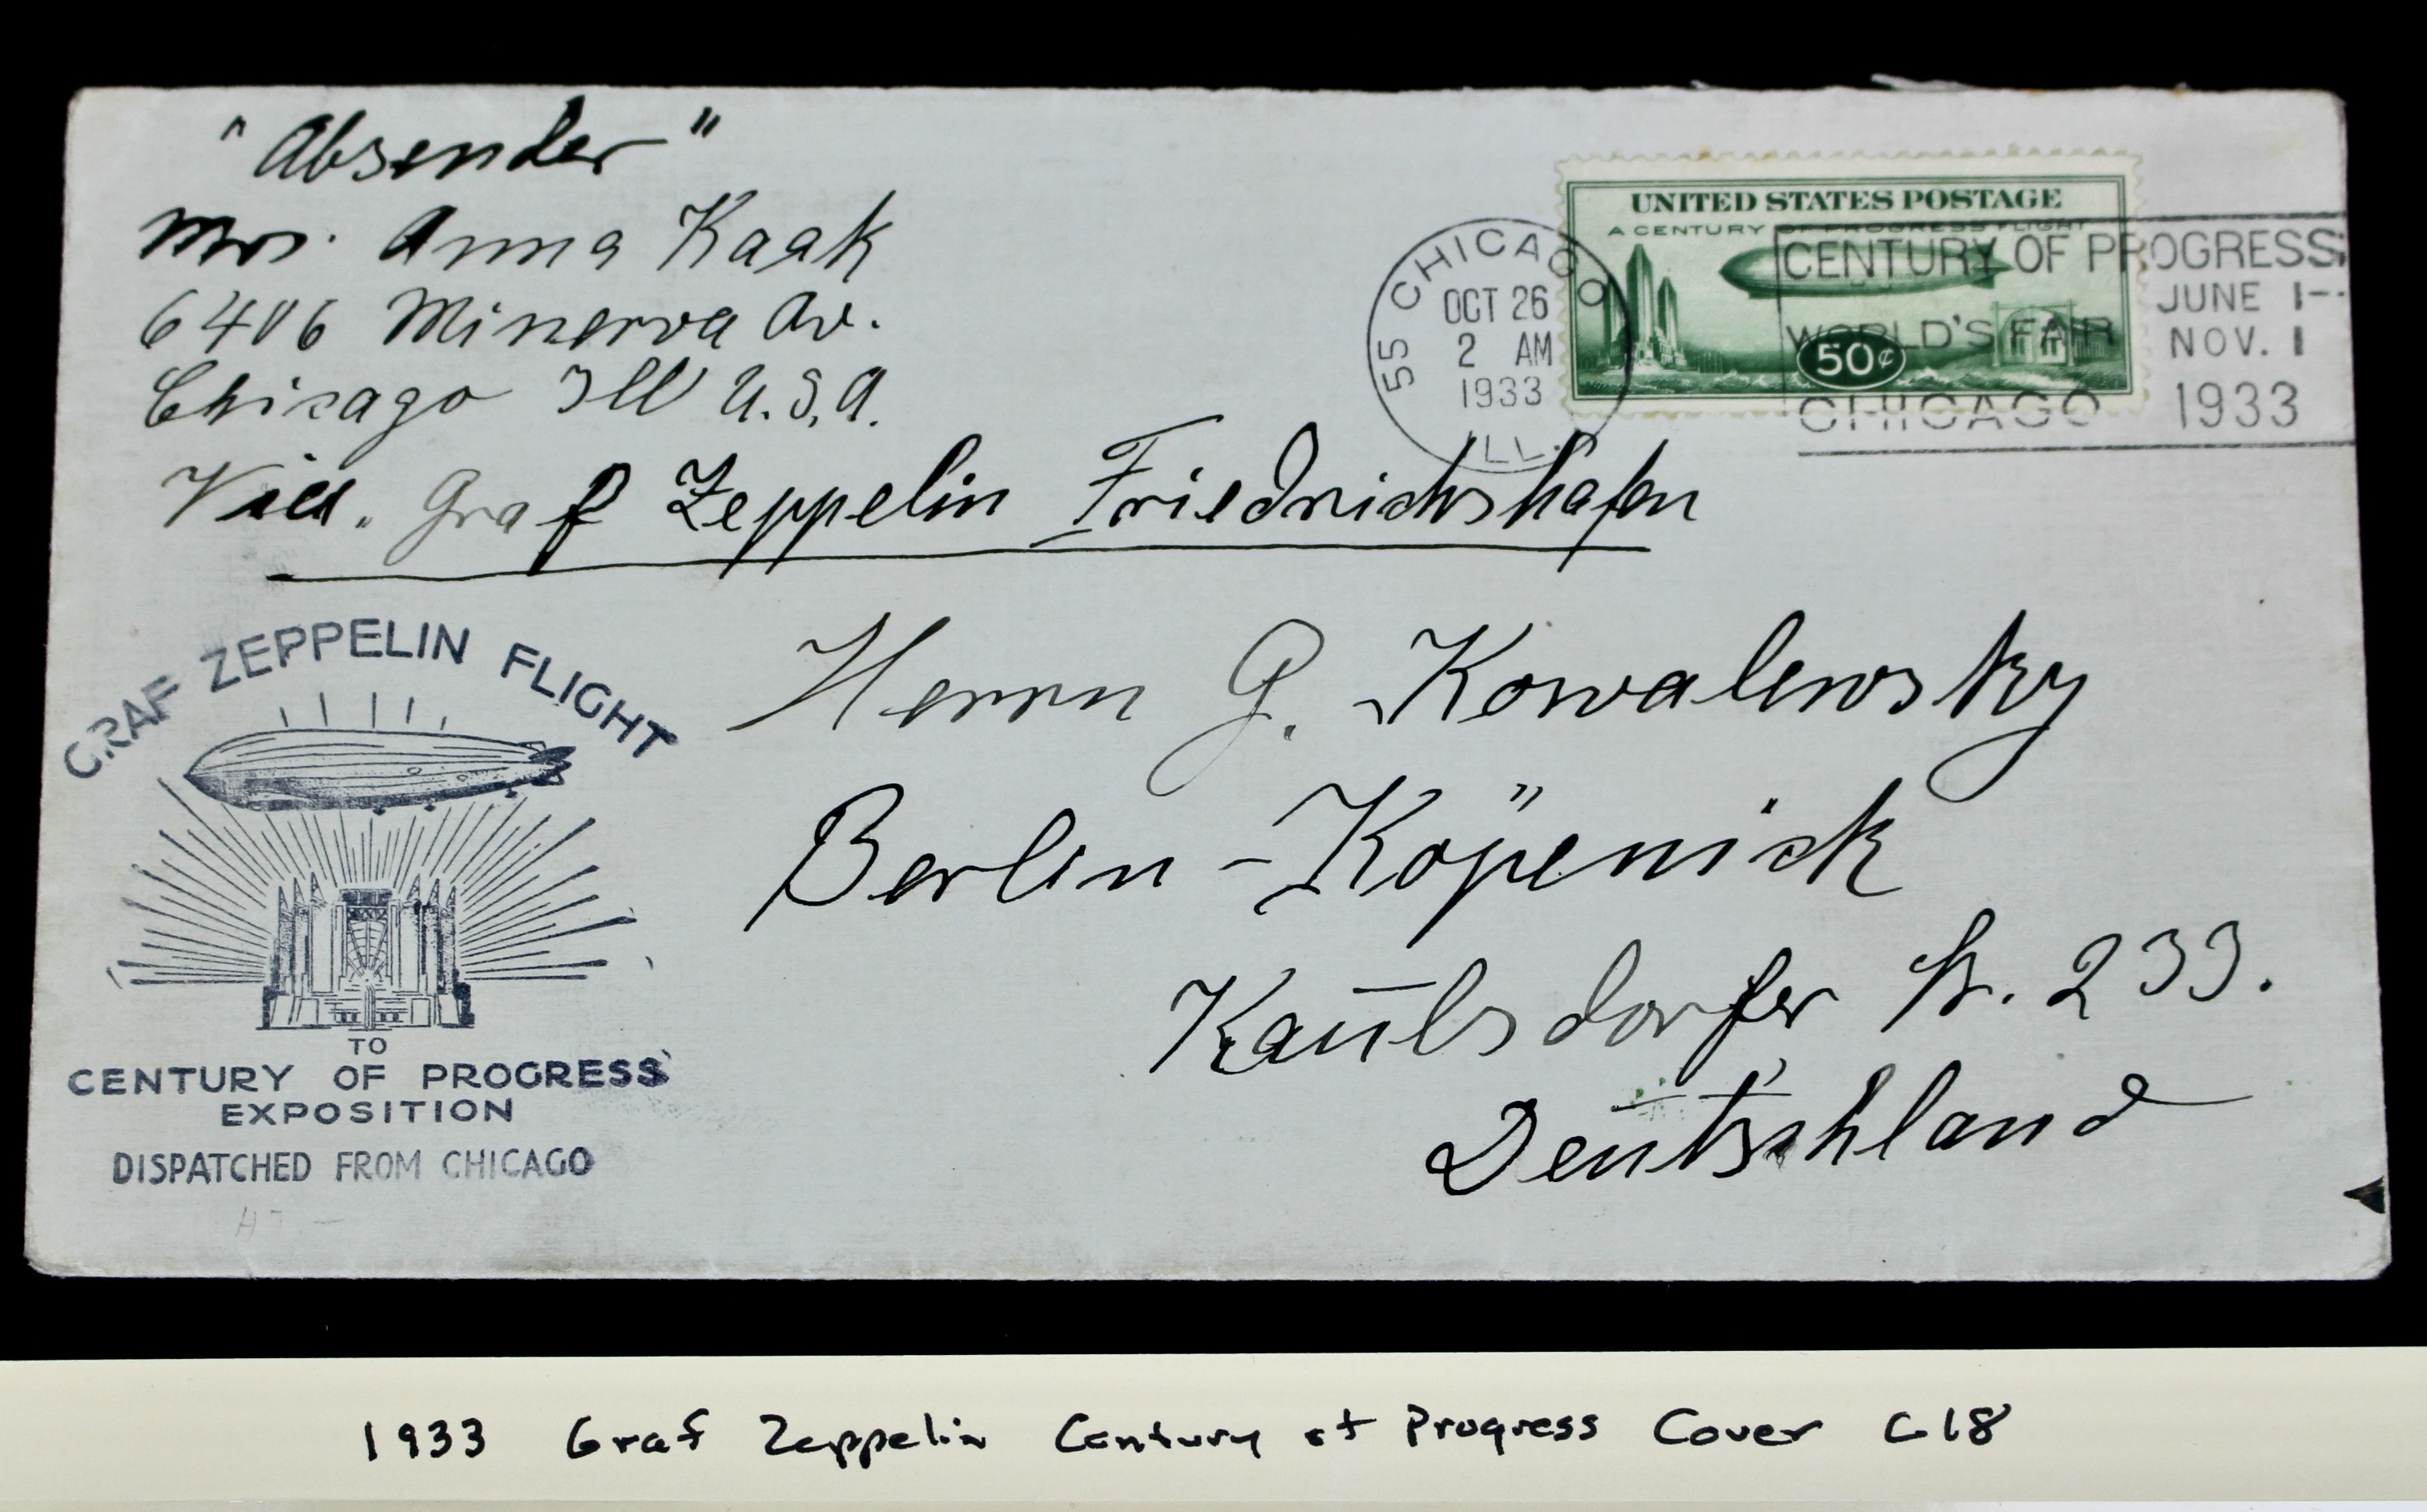 "Absender"
Mrs. Anna Kaak
6406 Minerva Av.
Chicago Ill U.S.A.
Via. Graf Zeppelin Friedrichshafen
55 CHICAGO
OCT 26
2 AM
1933
ILL.
UNITED STATES POSTAGE
A CENTURY OF PROGRESS FLIGHT
50¢
CENTURY OF PROGRESS
JUNE 1-
WORLD'S FAIR
NOV. 1
CHICAGO 1933
Herrn G. Kowalewsky
Berlin-Köpenick
Kaulsdorfer Str. 233.
Deutschland
GRAF ZEPPELIN FLIGHT
TO
CENTURY OF PROGRESS
EXPOSITION
DISPATCHED FROM CHICAGO
1933 Graf Zeppelin Century of Progress Cover C18